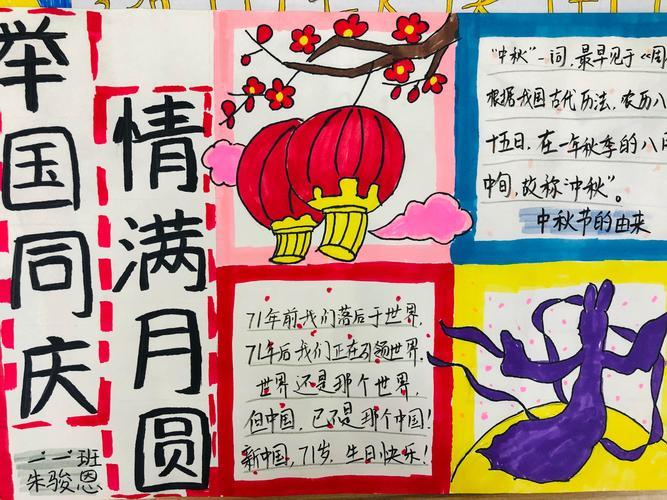 举国同庆
情满月圆
二一班
朱骏恩
"中秋"一词,最早见于《周
根据我国古代历法,农历八
十五日,在一年秋季的八月
中旬,故称"中秋"。
中秋节的由来
71年前我们落后于世界,
71年后我们正在引领世界,
世界还是那个世界,
但中国,已不是那个中国!
新中国,71岁,生日快乐!